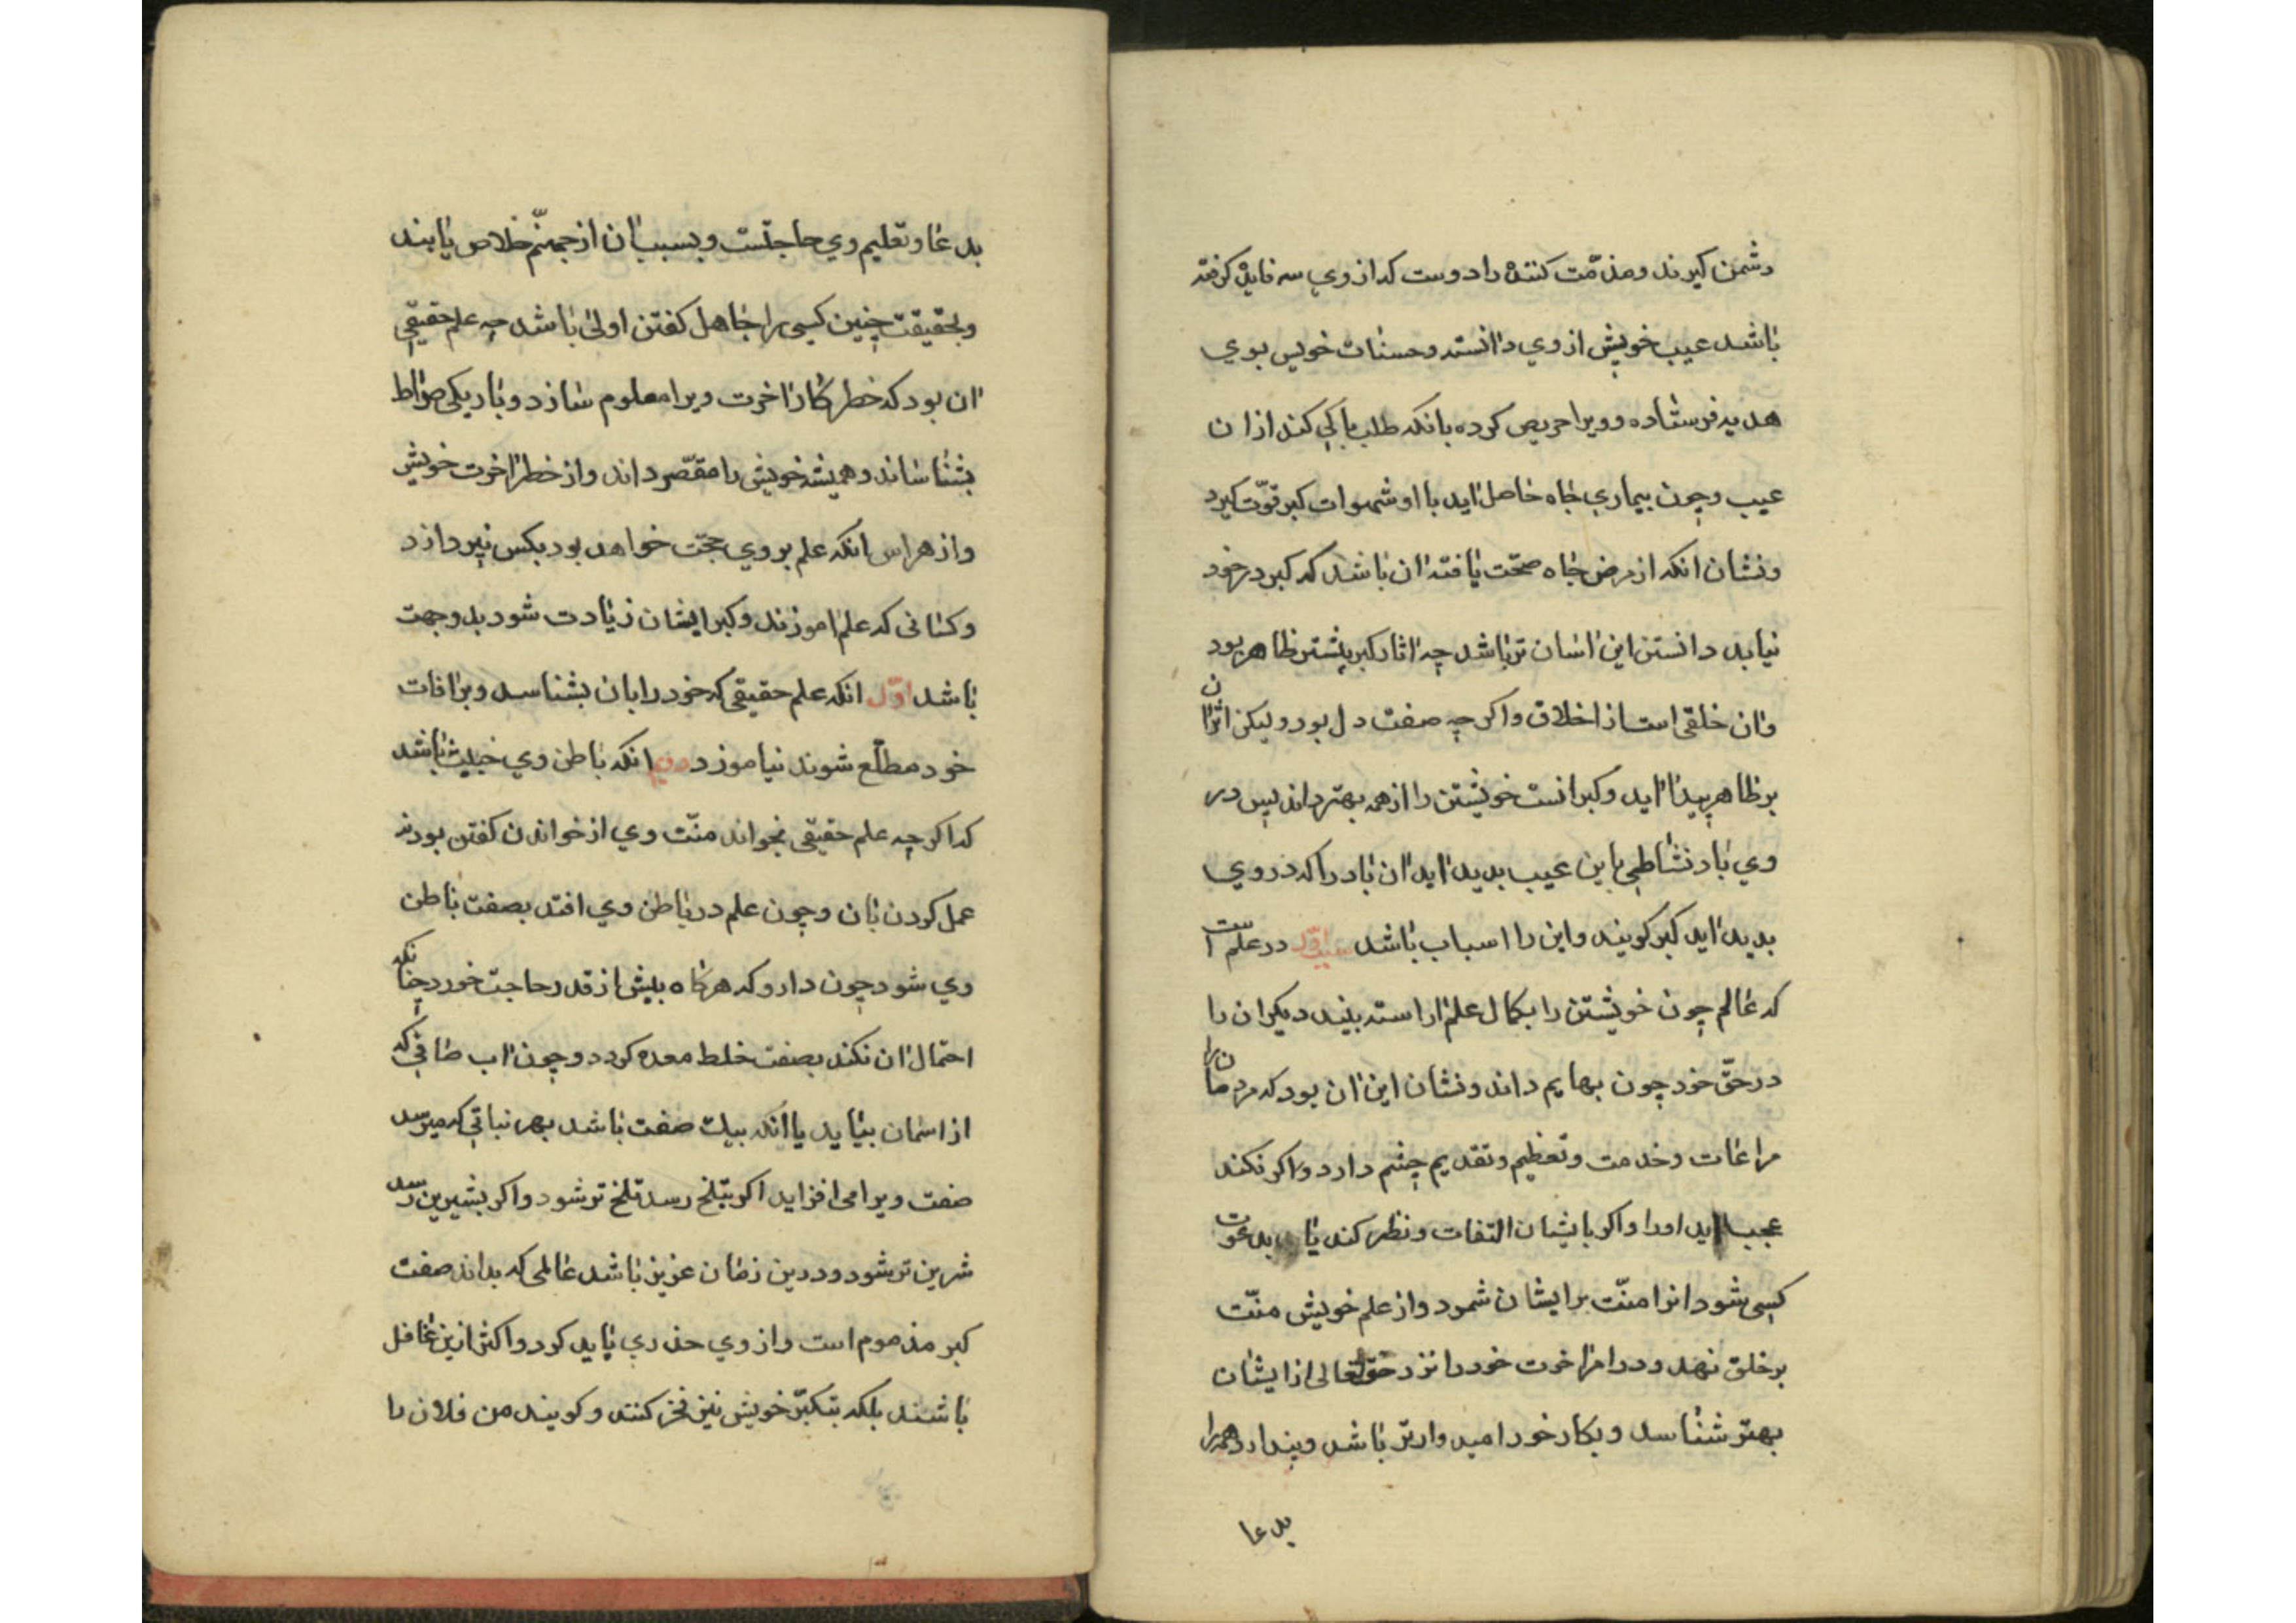 دشمن کیرند ومذمّت کننده را دوست که از وي سه فایده کرفته
باشد عیب خویش از وي دانسته وحسنات خویس بوي
هدیه فرستاده وویرا حریص کرده بانکه طلب باکي کند ازان
عیب وچون بیماري جاه حاصل اید با او شهوات کبر قوّت کیرد
ونشان انکه از مرض جاه صحّت یافته ان باشد که کبر در خود
نیابد دانستن این اسان تر باشد چه اثار کبر بیشتر ظاهر بود
وان خلقی است از اخلاق واکر چه صفت دل بود ولیکن اثر ان
بر ظاهر پیدا اید وکبر انست خویشتن را از همه بهتر داند پس در
وي باد نشاطی باین عیب بدید اید ان باد را که در وي
بدید اید کبر کویند واین را اسباب باشد سبب اوّل در علم است
که عالم چون خویشتن را بکمال علم اراسته بیند دیکران را
در حقّ خود چون بهایم داند ونشان این ان بود که مردمان را
مراعات وخدمت وتعظیم وتقدیم چشم دارد واکر نکنند
عجب اید اورا واکر بایشان التفات ونظر کند یا بدعوت
کسی شود انرا منّت بر ایشان شمرد واز علم خویش منّت
بر خلق نهد ودر امر اخرت خود را نزد حقّ تعالی از ایشان
بهتر شناسد وبکار خود امیدوارتر باشد وپندارد همه را
بدعا
بدعا وتعلیم وي حاجتست وبسبب ان از جهنّم خلاص یابند
وبحقیقت چنین کسی را جاهل کفتن اولی باشد چه علم حقیقی
ان بود که خطر کار اخرت ویرا معلوم سازد وباریکی صراط
بشناساند وهمیشه خویش را مقصّر داند واز خطر اخرت خویش
واز هراس انکه علم بر وي حجّت خواهد بود بکس نپردازد
وکسانی که علم اموزند وکبر ایشان زیادت شود بدو جهت
باشد اوّل انکه علم حقیقی که خود را بان بشناسد وبر افات
خود مطلّع شوند نیاموزد دویم انکه باطن وي خبیث باشد
که اکر چه علم حقیقی بخواند منّت وي از خواندن کفتن بود نه
عمل کردن بان وچون علم در باطن وي افتد بصفت باطن
وي شود چون دارو که هرکاه بیش از قدر حاجت خورد چنانکه
احتمال ان نکند بصفت خلط معده کردد وچون اب صافی که
از اسمان بیاید یا انکه بیك صفت باشد بهر نباتی که میرسد
صفت ویرا می افزاید اکر بتلخ رسد تلخ تر شود واکر بشیرین رسد
شرین تر شود ودرین زمان عزیز باشد عالمی که بداند صفت
کبر مذموم است واز وي حذري باید کرد واکثر ازین غافل
باشند بلکه بتکبّر خویش نیز فخر کنند وکویند من فلان را